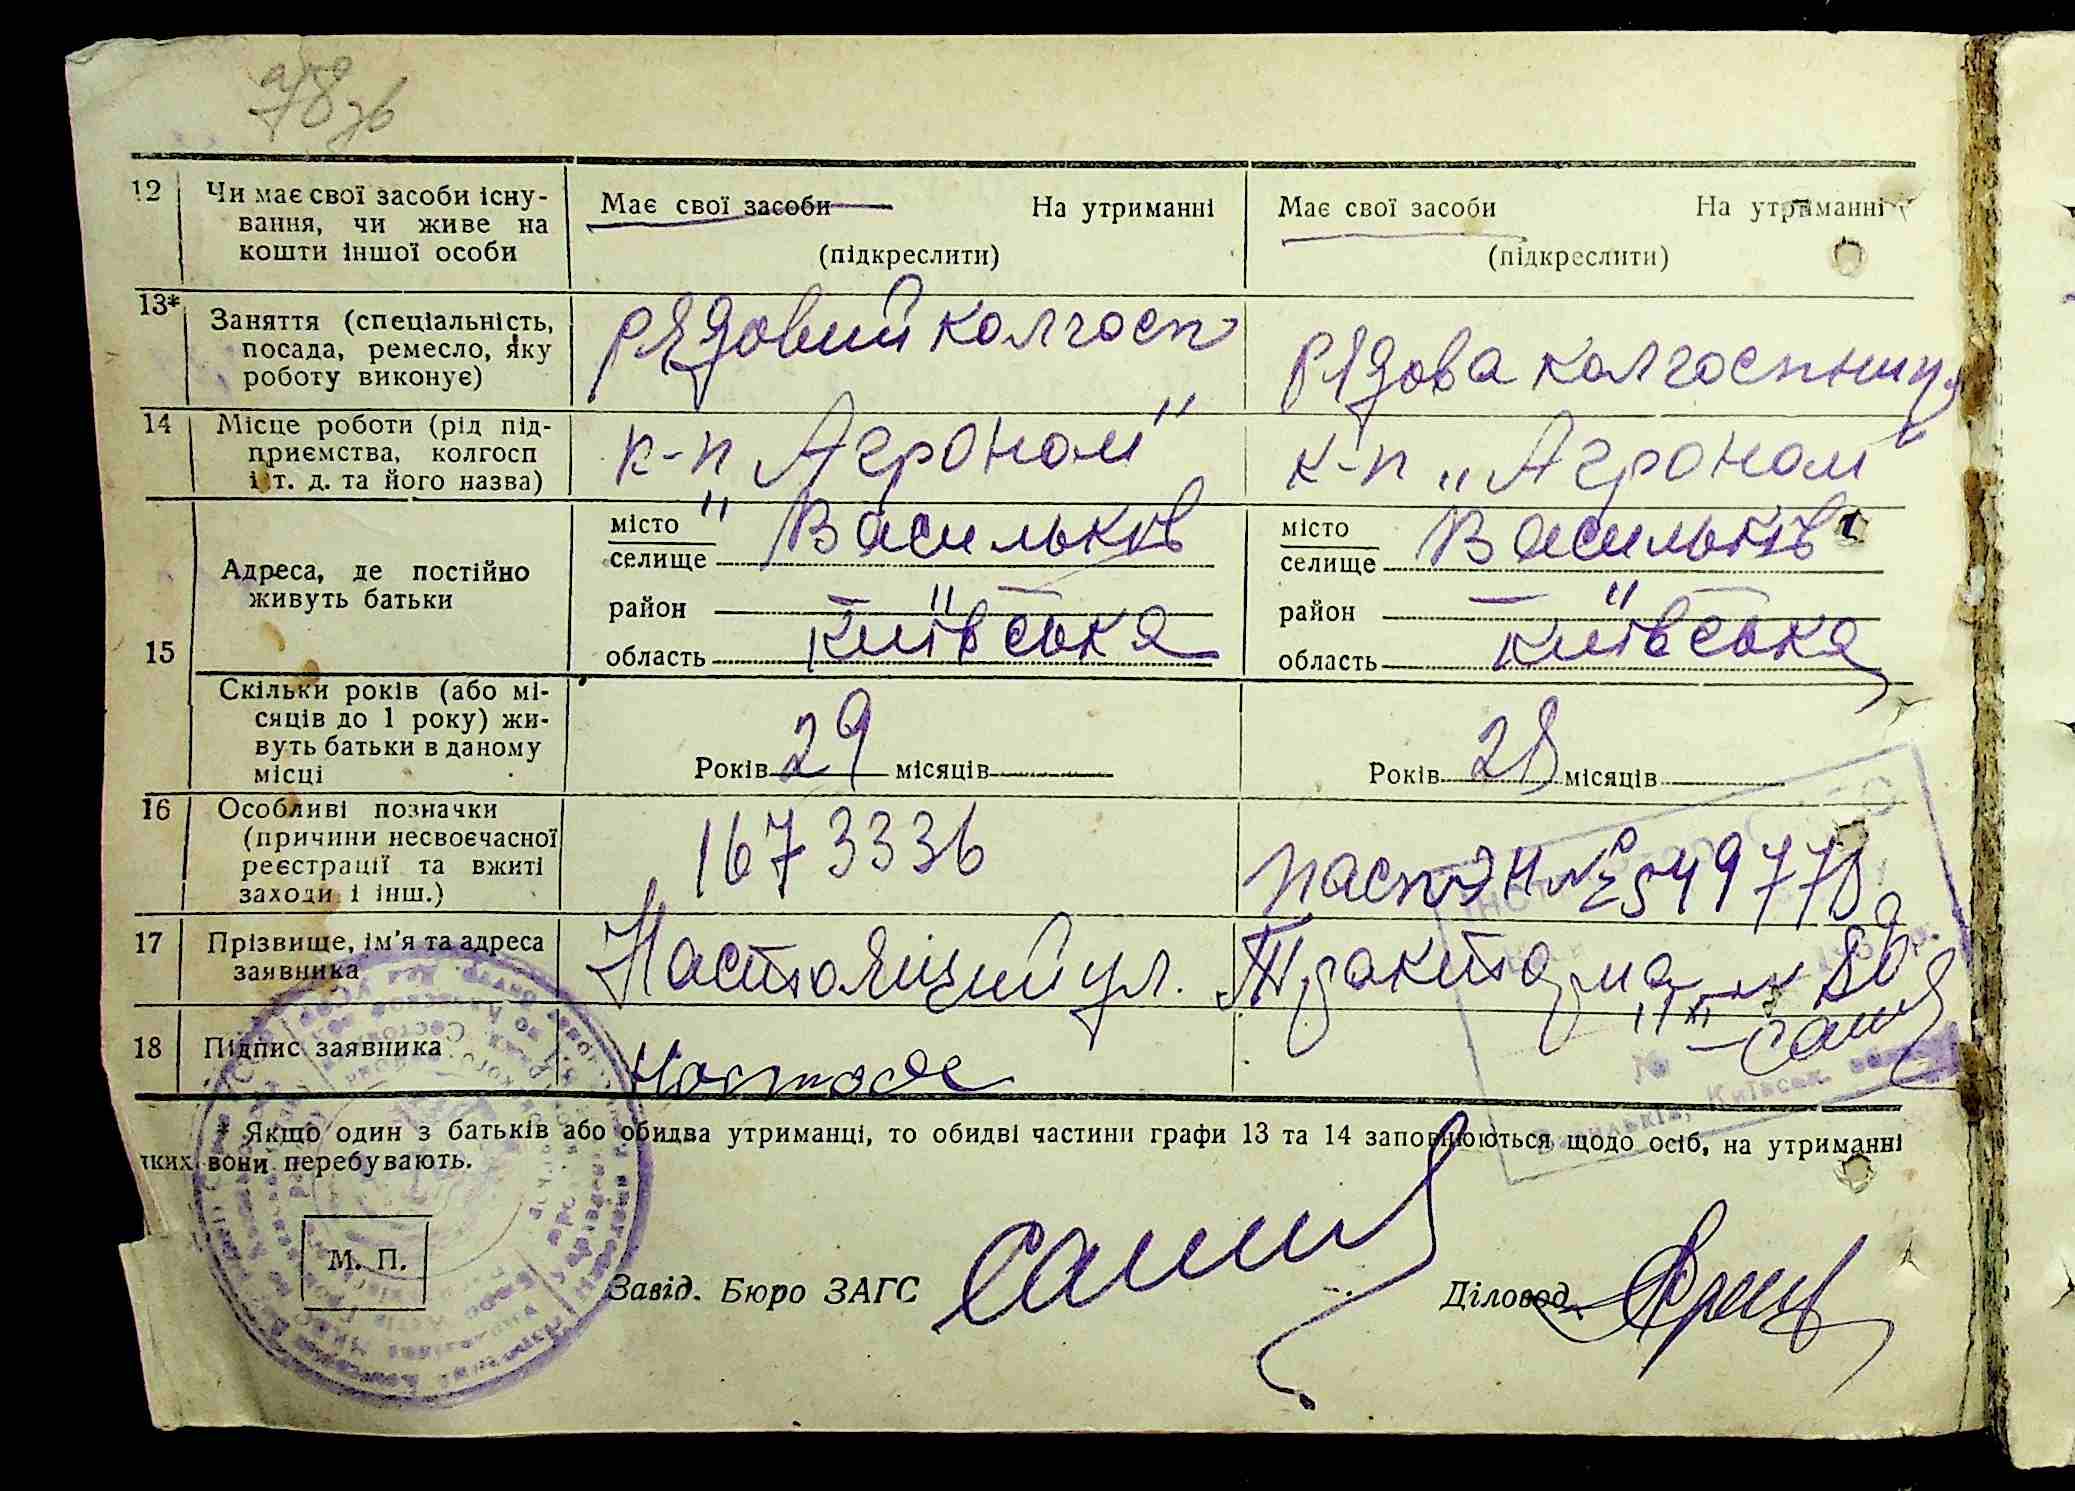 78 зв
12 Чи має свої засоби існу-
вання, чи живе на
кошти іншої особи
Має свої засоби На утриманні
(підкреслити)
Має свої засоби На утриманні
(підкреслити)
13* Заняття (спеціальність,
посада, ремесло, яку
роботу виконує)
рядовий колгосп
рядова колгоспниця
14 Місце роботи (рід під-
приємства, колгосп
і т. д. та його назва)
к-п „Агроном"
к-п „Агроном"
15 Адреса, де постійно
живуть батьки
місто
селище Васильків
район — " —
область Київська
місто
селище Васильків
район — " —
область Київська
Скільки років (або мі-
сяців до 1 року) жи-
вуть батьки в даному
місці
Років 29 місяців
Років 28 місяців
16 Особливі позначки
(причини несвоєчасної
реєстрації та вжиті
заходи і інш.)
1673336
пасп ЭН № 549778
17 Прізвище, ім'я та адреса
заявника
Настоящий ул.
18 Підпис заявника
* Якщо один з батьків або обидва утриманці, то обидві частини графи 13 та 14 заповнюються щодо осіб, на утриманні
яких вони перебувають.
М. П.
Завід. Бюро ЗАГС
Діловод